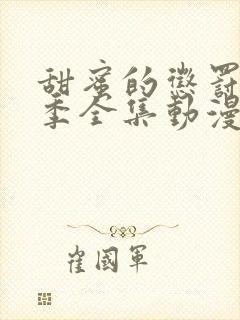 甜蜜的懲罰
季全集動漫
崔國軍